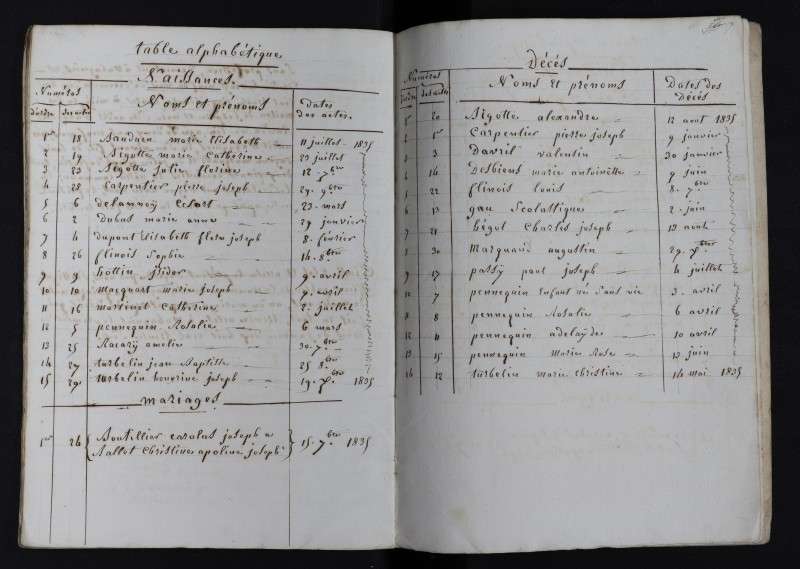 table alphabétique
Naissances
Numéros Noms et prénoms Dates des actes
d'ordre des actes
1er 18 Baudain marie Elisabeth 11 juillet 1835
2 19 Bigotte marie Catherine 23 juillet
3 23 Bigotte julie florine 12 7bre
4 28 Carpentier pierre joseph 29 9bre
5 6 delannoy Césart 23 mars
6 2 Dubus marie anne 29 janvier
7 4 dupont Elisabeth flore joseph 8 février
8 26 flinois Sophie 14 8bre
9 9 hottin jsidor 9 avril
10 10 Macquart marie joseph 9 avril
11 16 martinet Catherine 2 juillet
12 5 pennequin Rosalie 6 mars
13 25 Racary amelie 30 7bre
14 27 turbelin jean Baptiste 25 8bre
15 29 turbelin honorine joseph 19 Xbre 1835
mariages
1er 24 Boutillier carolus joseph a
Ballot Christine apoline joseph 15 7bre 1835
Décès
Numéros Noms et prénoms Dates des Décès
d'ordre des actes
20 Bigotte alexandre 12 aout 1835
2 1er Carpentier pierre joseph 9 janvier
3 3 Davril Valentin 30 janvier
4 14 Desbiens marie antoinette 9 juin
22 flinois louis 8 7bre
6 13 gau Scolastique 2 juin
7 21 hégot Charles joseph 13 aout
30 Marquand augustin 29 Xbre
9 17 passy paul joseph 4 juillet
10 7 pennequin Enfant né Sans vie 3 avril
11 8 pennequin Rosalie 6 avril
12 11 pennequin adelayde 10 avril
13 15 pennequin Marie Rose 13 juin
14 12 turbelin marie christine 14 mai 1835